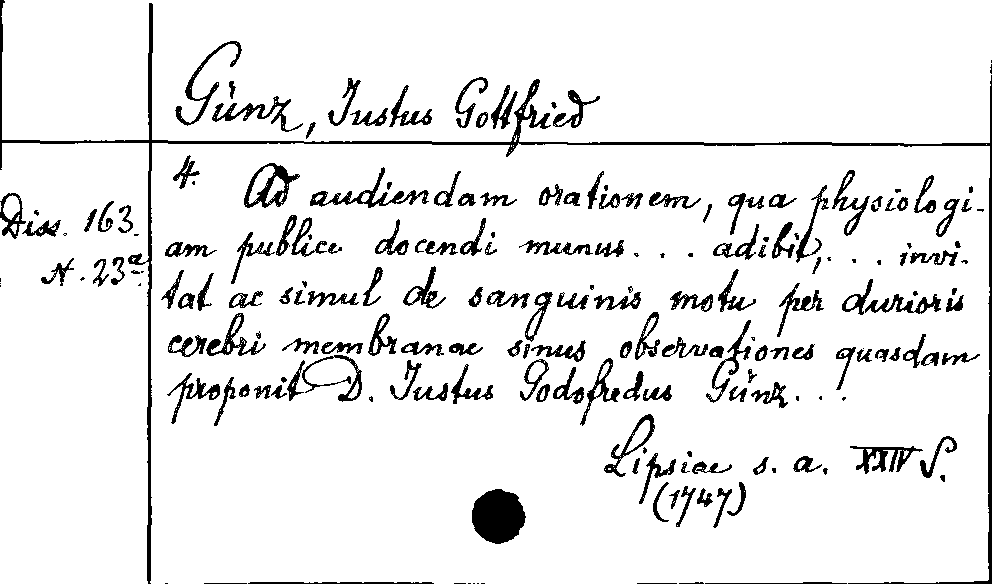 Günz, Justus Gottfried
4. Ad audiendam orationem, qua physiologi-
Diss. 163.
am publice docendi munus... adibit,... invi-
N. 23a.
tat ac simul de sanguinis motu per durioris
cerebri membranae sinus observationes quasdam
proponit D. Justus Godofredus Günz...
Lipsiae s. a. XXIV S.
(1747)